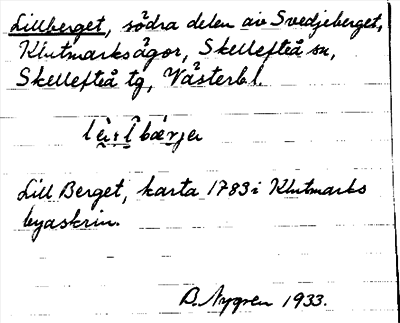 Lillberget, södra delen av Svedjeberget,
Klutmarksägor, Skellefteå sn,
Skellefteå tg, Västerb l.
Lill Berget, karta 1783 i Klutmarks
byaskrin.
B. Nygren 1933.